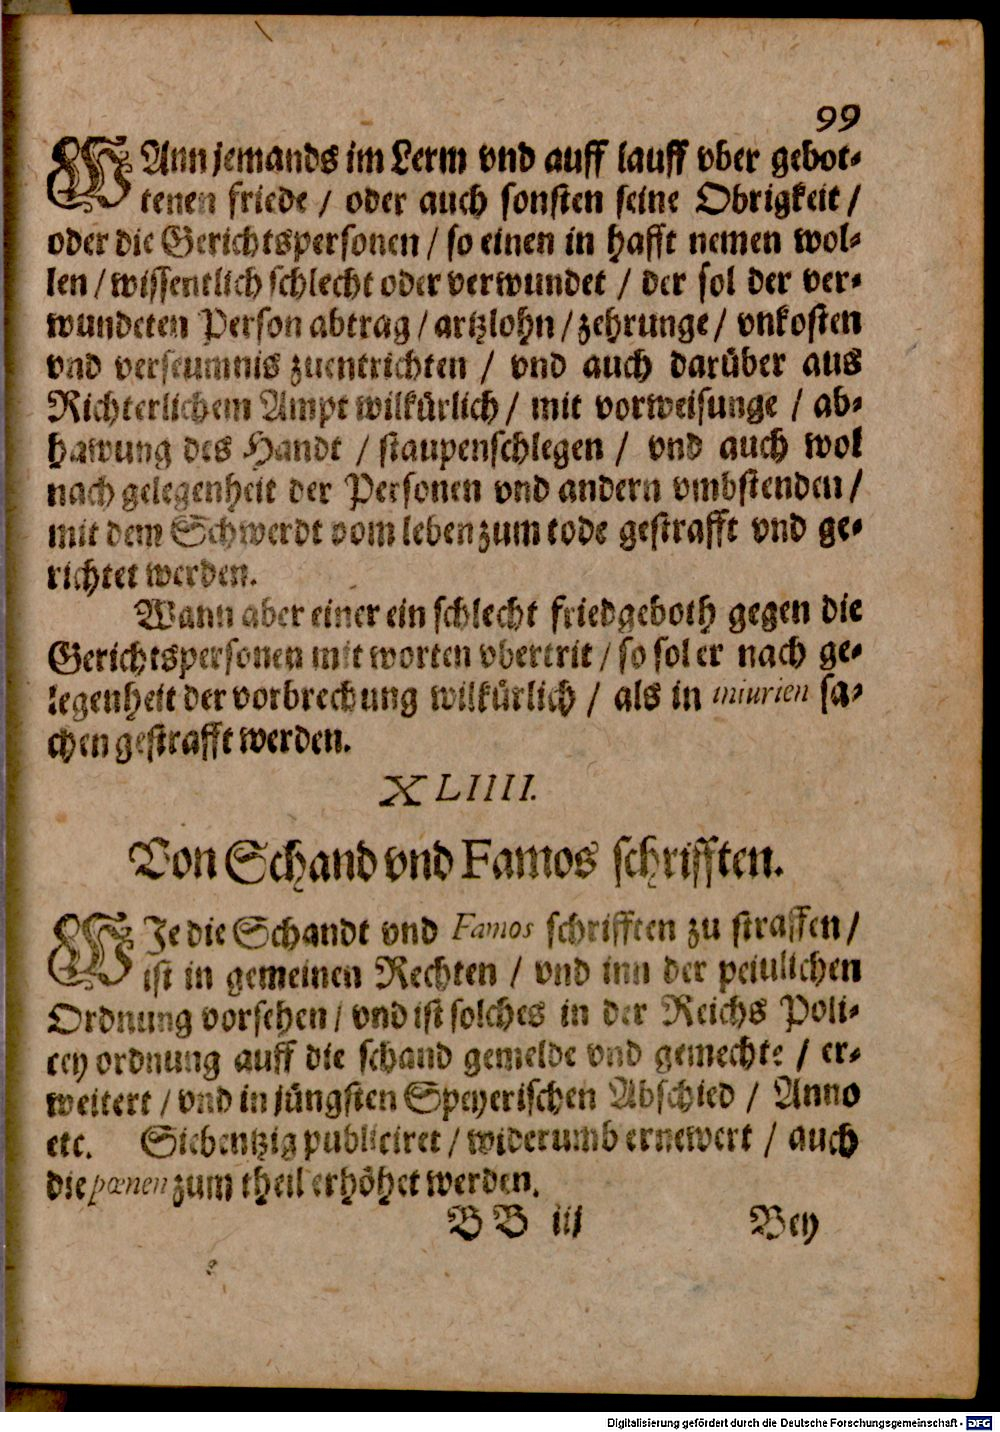 99
WAnn jemands im Lerm vnd auff lauff vber gebot-
tenen friede / oder auch sonsten seine Obrigkeit /
oder die Gerichtspersonen / so einen in hafft nemen wol-
len / wissentlich schlecht oder verwundet / der sol der ver-
wundeten Person abtrag / artzlohn / zehrunge / vnkosten
vnd verseumnis zuentrichten / vnd auch darüber aus
Richterlichem Ampt wilkürlich / mit vorweisunge / ab-
hawung des Handt / staupenschlegen / vnd auch wol
nach gelegenheit der Personen vnd andern vmbstenden /
mit dem Schwerdt vom leben zum tode gestrafft vnd ge-
richtet werden.
Wann aber einer ein schlecht friedgeboth gegen die
Gerichtspersonen mit worten vbertrit / so sol er nach ge-
legenheit der vorbrechung wilkürlich / als in iniurien sa-
chen gestrafft werden.
XLIIII.
Von Schand vnd Famos schrifften.
WJe die Schandt vnd Famos schrifften zu straffen /
ist in gemeinen Rechten / vnd inn der peinlichen
Ordnung vorsehen / vnd ist solches in der Reichs Poli-
cey ordnung auff die schand gemelde vnd gemechte / er-
weitert / vnd in jüngsten Speyerischen Abschied / Anno
etc. Siebentzig publiciret / widerumb ernewert / auch
die pœnen zum theil erhöhet werden.
BB iij Bey
Digitalisierung gefördert durch die Deutsche Forschungsgemeinschaft - DFG